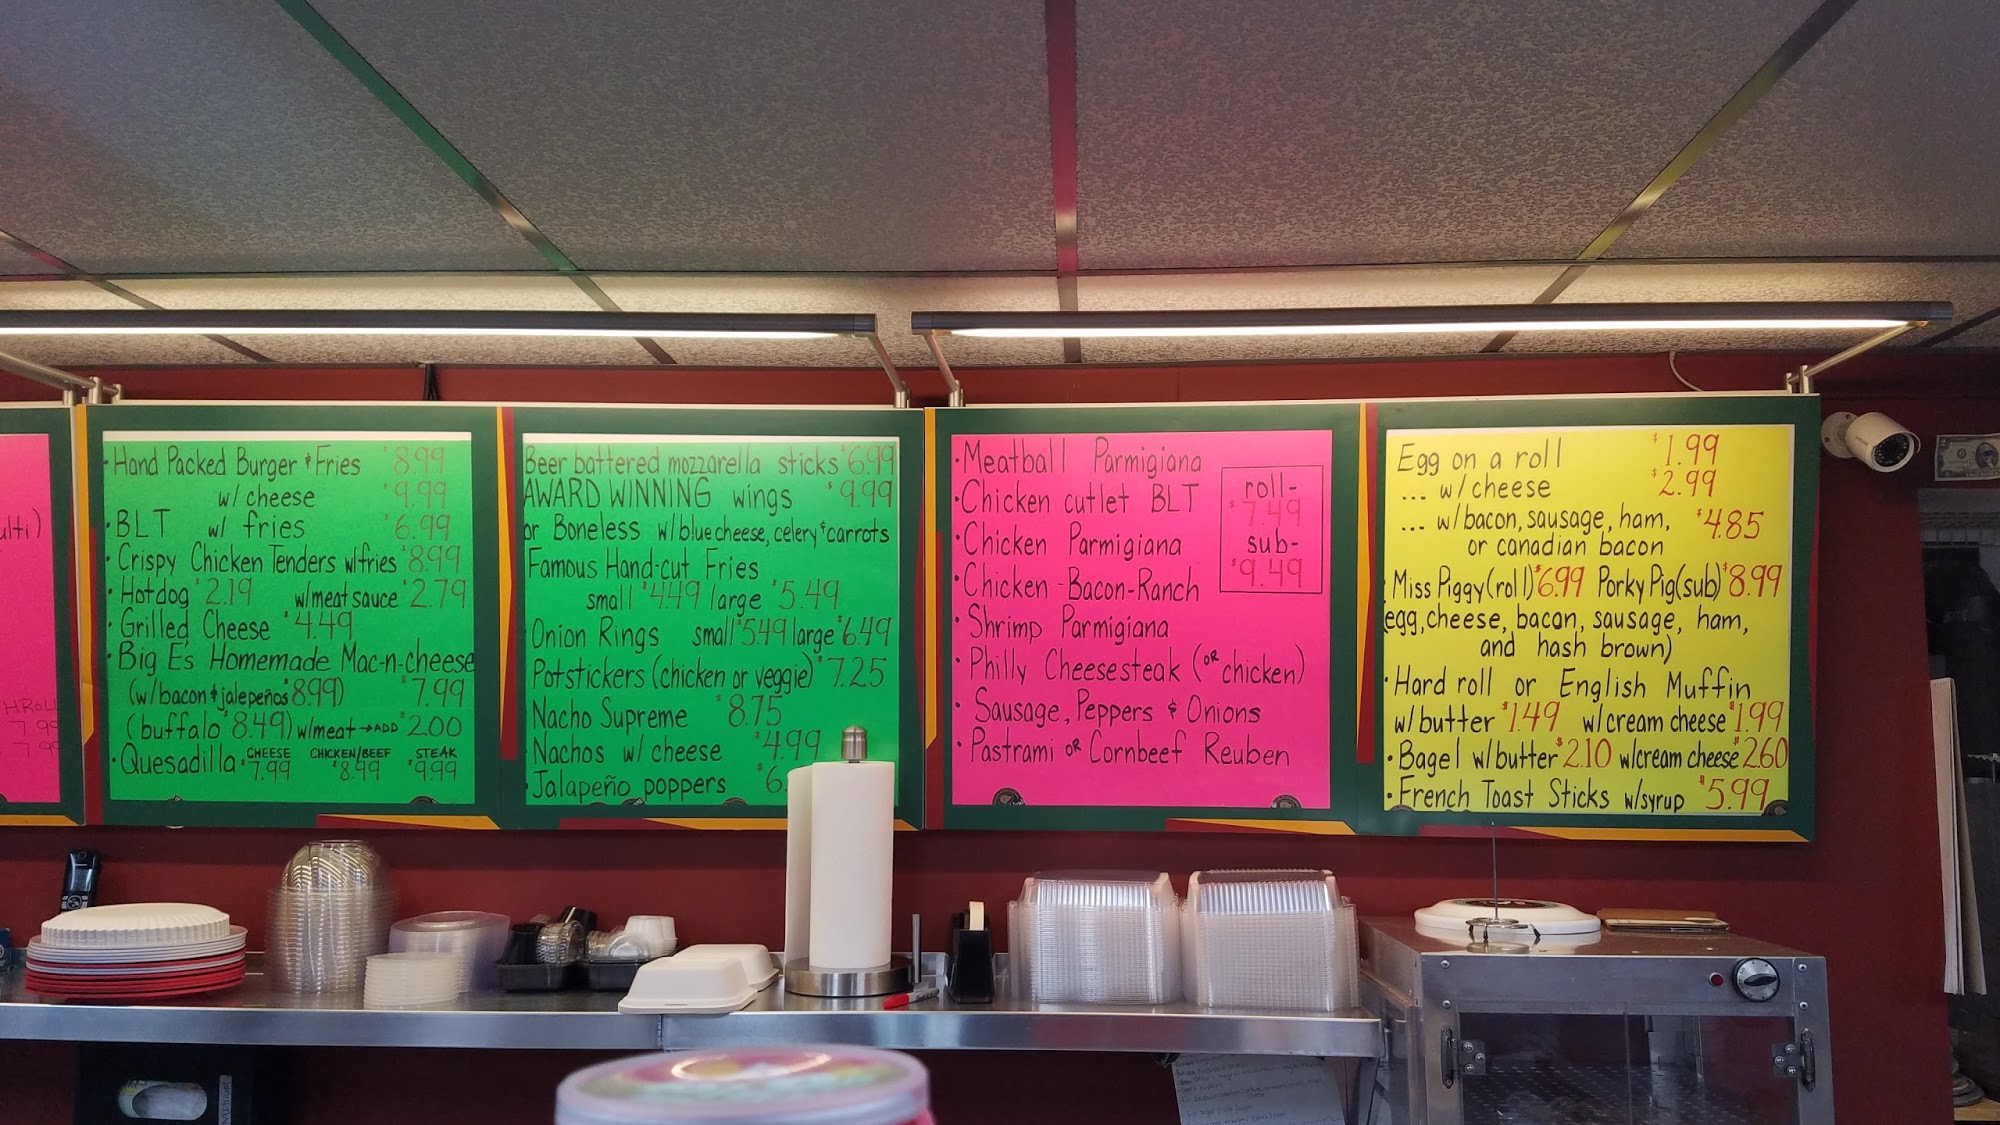 ulti)
H.ROLL
7.99
7.99
· Hand Packed Burger & Fries $8.99
w/ cheese $9.99
· BLT w/ fries $6.99
· Crispy Chicken Tenders w/fries $8.99
· Hotdog $2.19 w/meat sauce $2.79
· Grilled Cheese $4.49
· Big E's Homemade Mac-n-cheese
(w/bacon & jalepeños $8.99) $7.99
(buffalo $8.49) w/meat → ADD $2.00
· Quesadilla CHEESE $7.99 CHICKEN/BEEF $8.99 STEAK $9.99
Beer battered mozzarella sticks $6.99
AWARD WINNING wings $9.99
or Boneless w/bluecheese, celery & carrots
Famous Hand-cut Fries
small $4.49 large $5.49
Onion Rings small $5.49 large $6.49
Potstickers (chicken or veggie) $7.25
Nacho Supreme $8.75
Nachos w/ cheese $4.99
· Jalapeño poppers $6.
· Meatball Parmigiana
· Chicken cutlet BLT
· Chicken Parmigiana
· Chicken-Bacon-Ranch
· Shrimp Parmigiana
· Philly Cheesesteak (or chicken)
· Sausage, Peppers & Onions
· Pastrami or Cornbeef Reuben
roll-
$7.49
sub-
$9.49
Egg on a roll $1.99
... w/cheese $2.99
... w/bacon, sausage, ham, $4.85
or canadian bacon
· Miss Piggy (roll) $6.99 Porky Pig (sub) $8.99
(egg, cheese, bacon, sausage, ham,
and hash brown)
· Hard roll or English Muffin
w/butter $1.49 w/cream cheese $1.99
· Bagel w/butter $2.10 w/cream cheese $2.60
· French Toast Sticks w/syrup $5.99